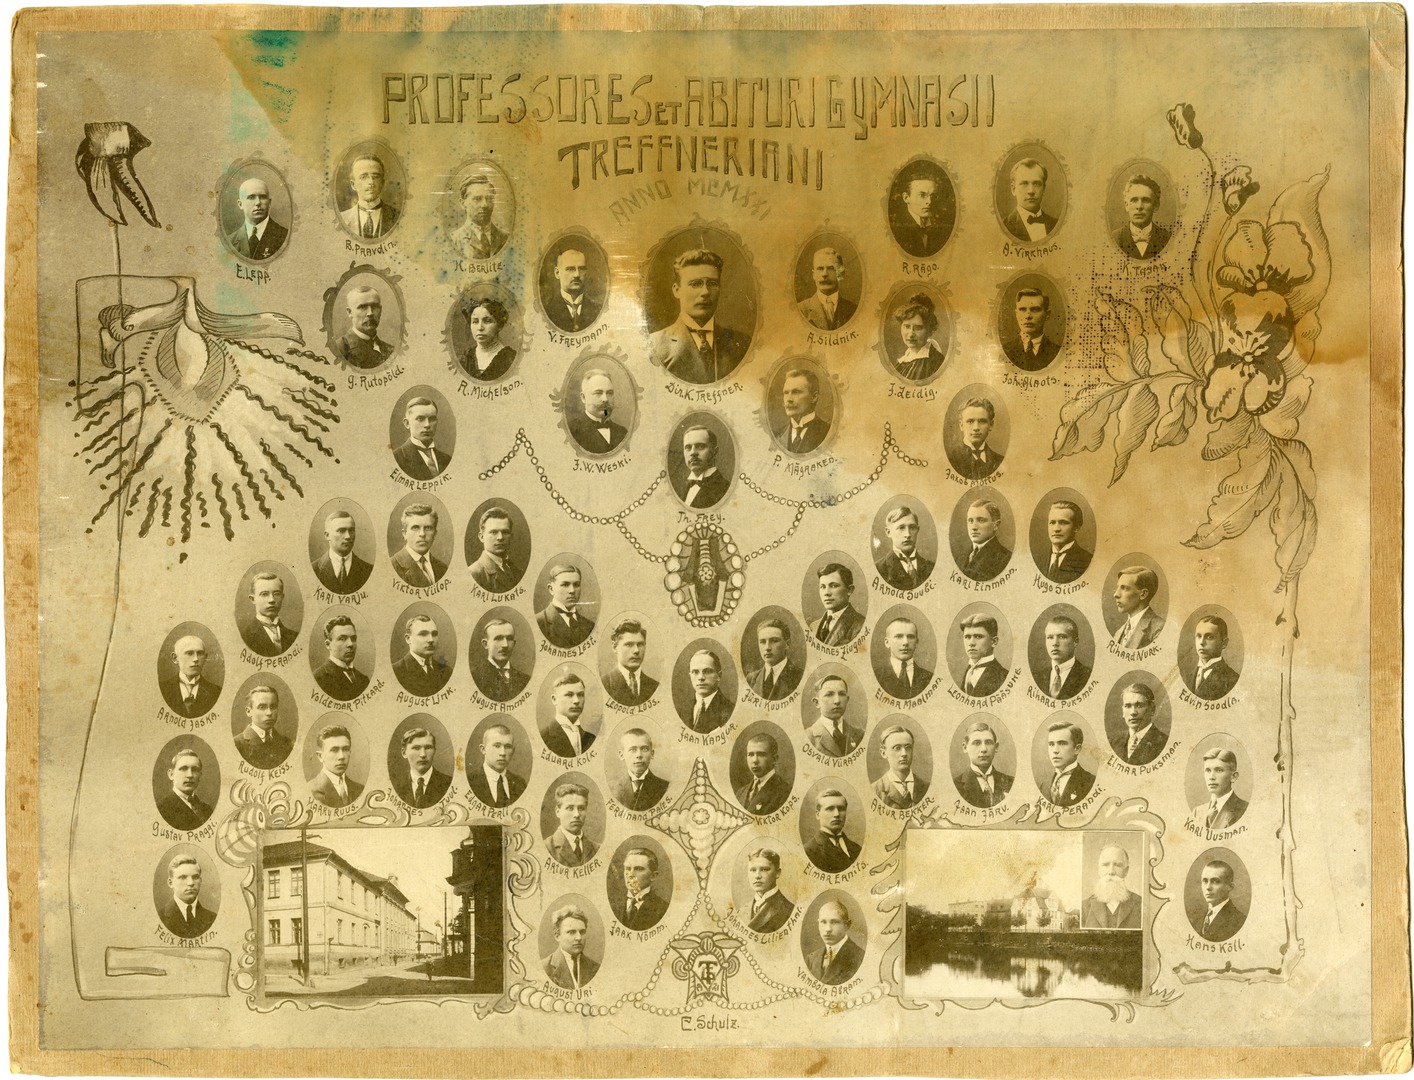 PROFESSORES ET ABITURI GYMNASII
TREFFNERIANI
ANNO MCMXXI
E. Lepp.
B. Pravdin.
K. Berlite.
R. Rägo.
A. Virkhaus.
V. Freymann.
Dir. K. Treffner.
A. Sildnik.
G. Rutopõld.
R. Michelson.
J. Leidig.
J. W. Weski.
P. Mägraken.
Elmar Leppik.
Th. Frey.
Karl Varju.
Viktor Villop.
Karl Lukats.
Arnold Juubi.
Karl Einmann.
Hugo Siimo.
Adolf Perandi.
Johannes Lest.
Johannes Ziugand.
Rihard Nurk.
Voldemar Pitkard.
August Link.
August Ammon.
Leopold Loüs.
Jüri Kuuman.
Elmar Maalman.
Leonhard Pääsuke.
Rihard Puksman.
Edvin Soodla.
Arnold Jaska.
Jaan Kangur.
Rudolf Keiss.
Eduard Kolk.
Osvald Vürason.
Elmar Puksman.
Harry Ruus.
Johannes Tuul.
Edgar Perli
Ferdinand Pales.
Viktor Kops.
Artur Bekker.
Jaan Järv.
Karl Perandi.
Gustav Paragi.
Karl Uusman.
Artur Keller.
Elmar Ernits.
Felix Martin.
Jaak Nõmm.
Johannes Lilienthal.
Hans Köll.
August Uri.
Vambola Abram.
E. Schulz.